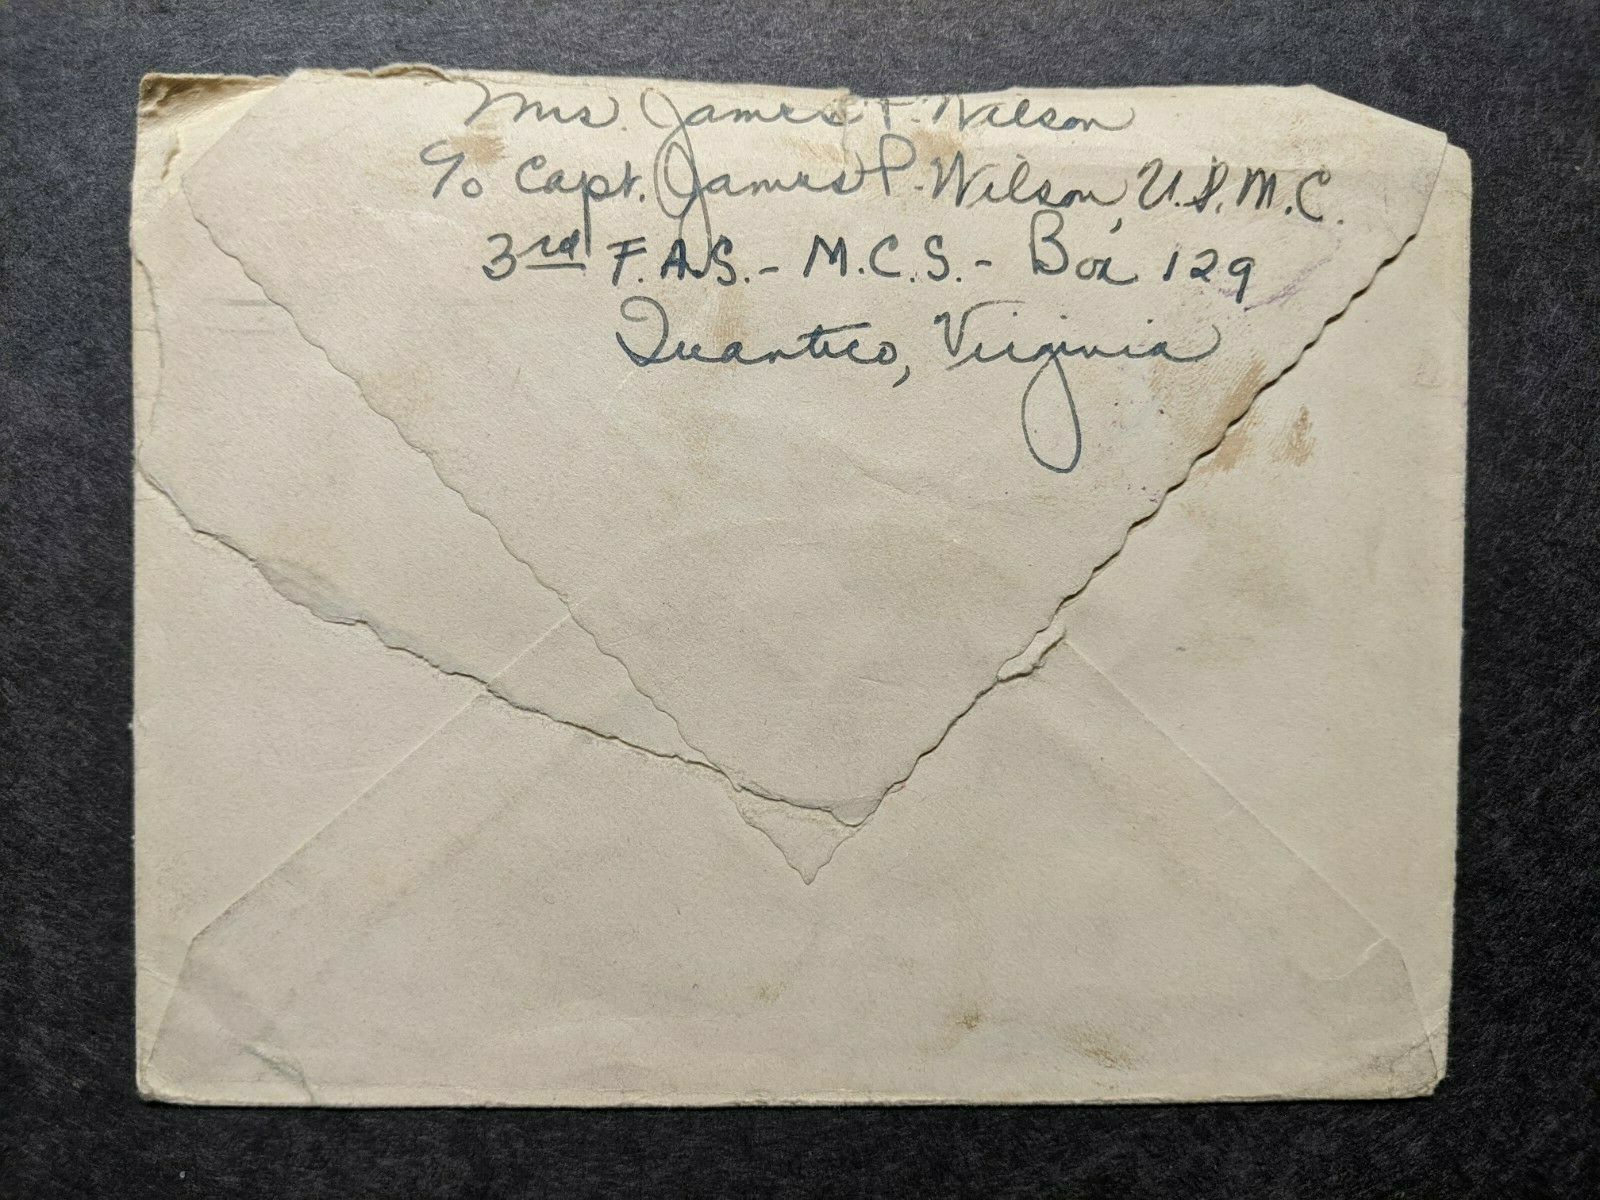 Mrs. James P. Wilson
c/o Capt. James P. Wilson, U.S.M.C.
3rd F.A.S. - M.C.S. - Box 129
Quantico, Virginia